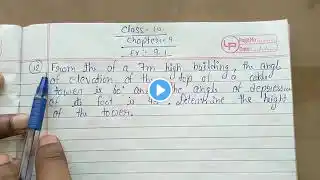 Class-10
Chapter-9
Ex:- 9.1
(12) From the of a 7m high building, the angle
of elevation of the top of a cable
tower is 60° and the angle of depression
of its foot is 45°. Determine the height
of the tower.